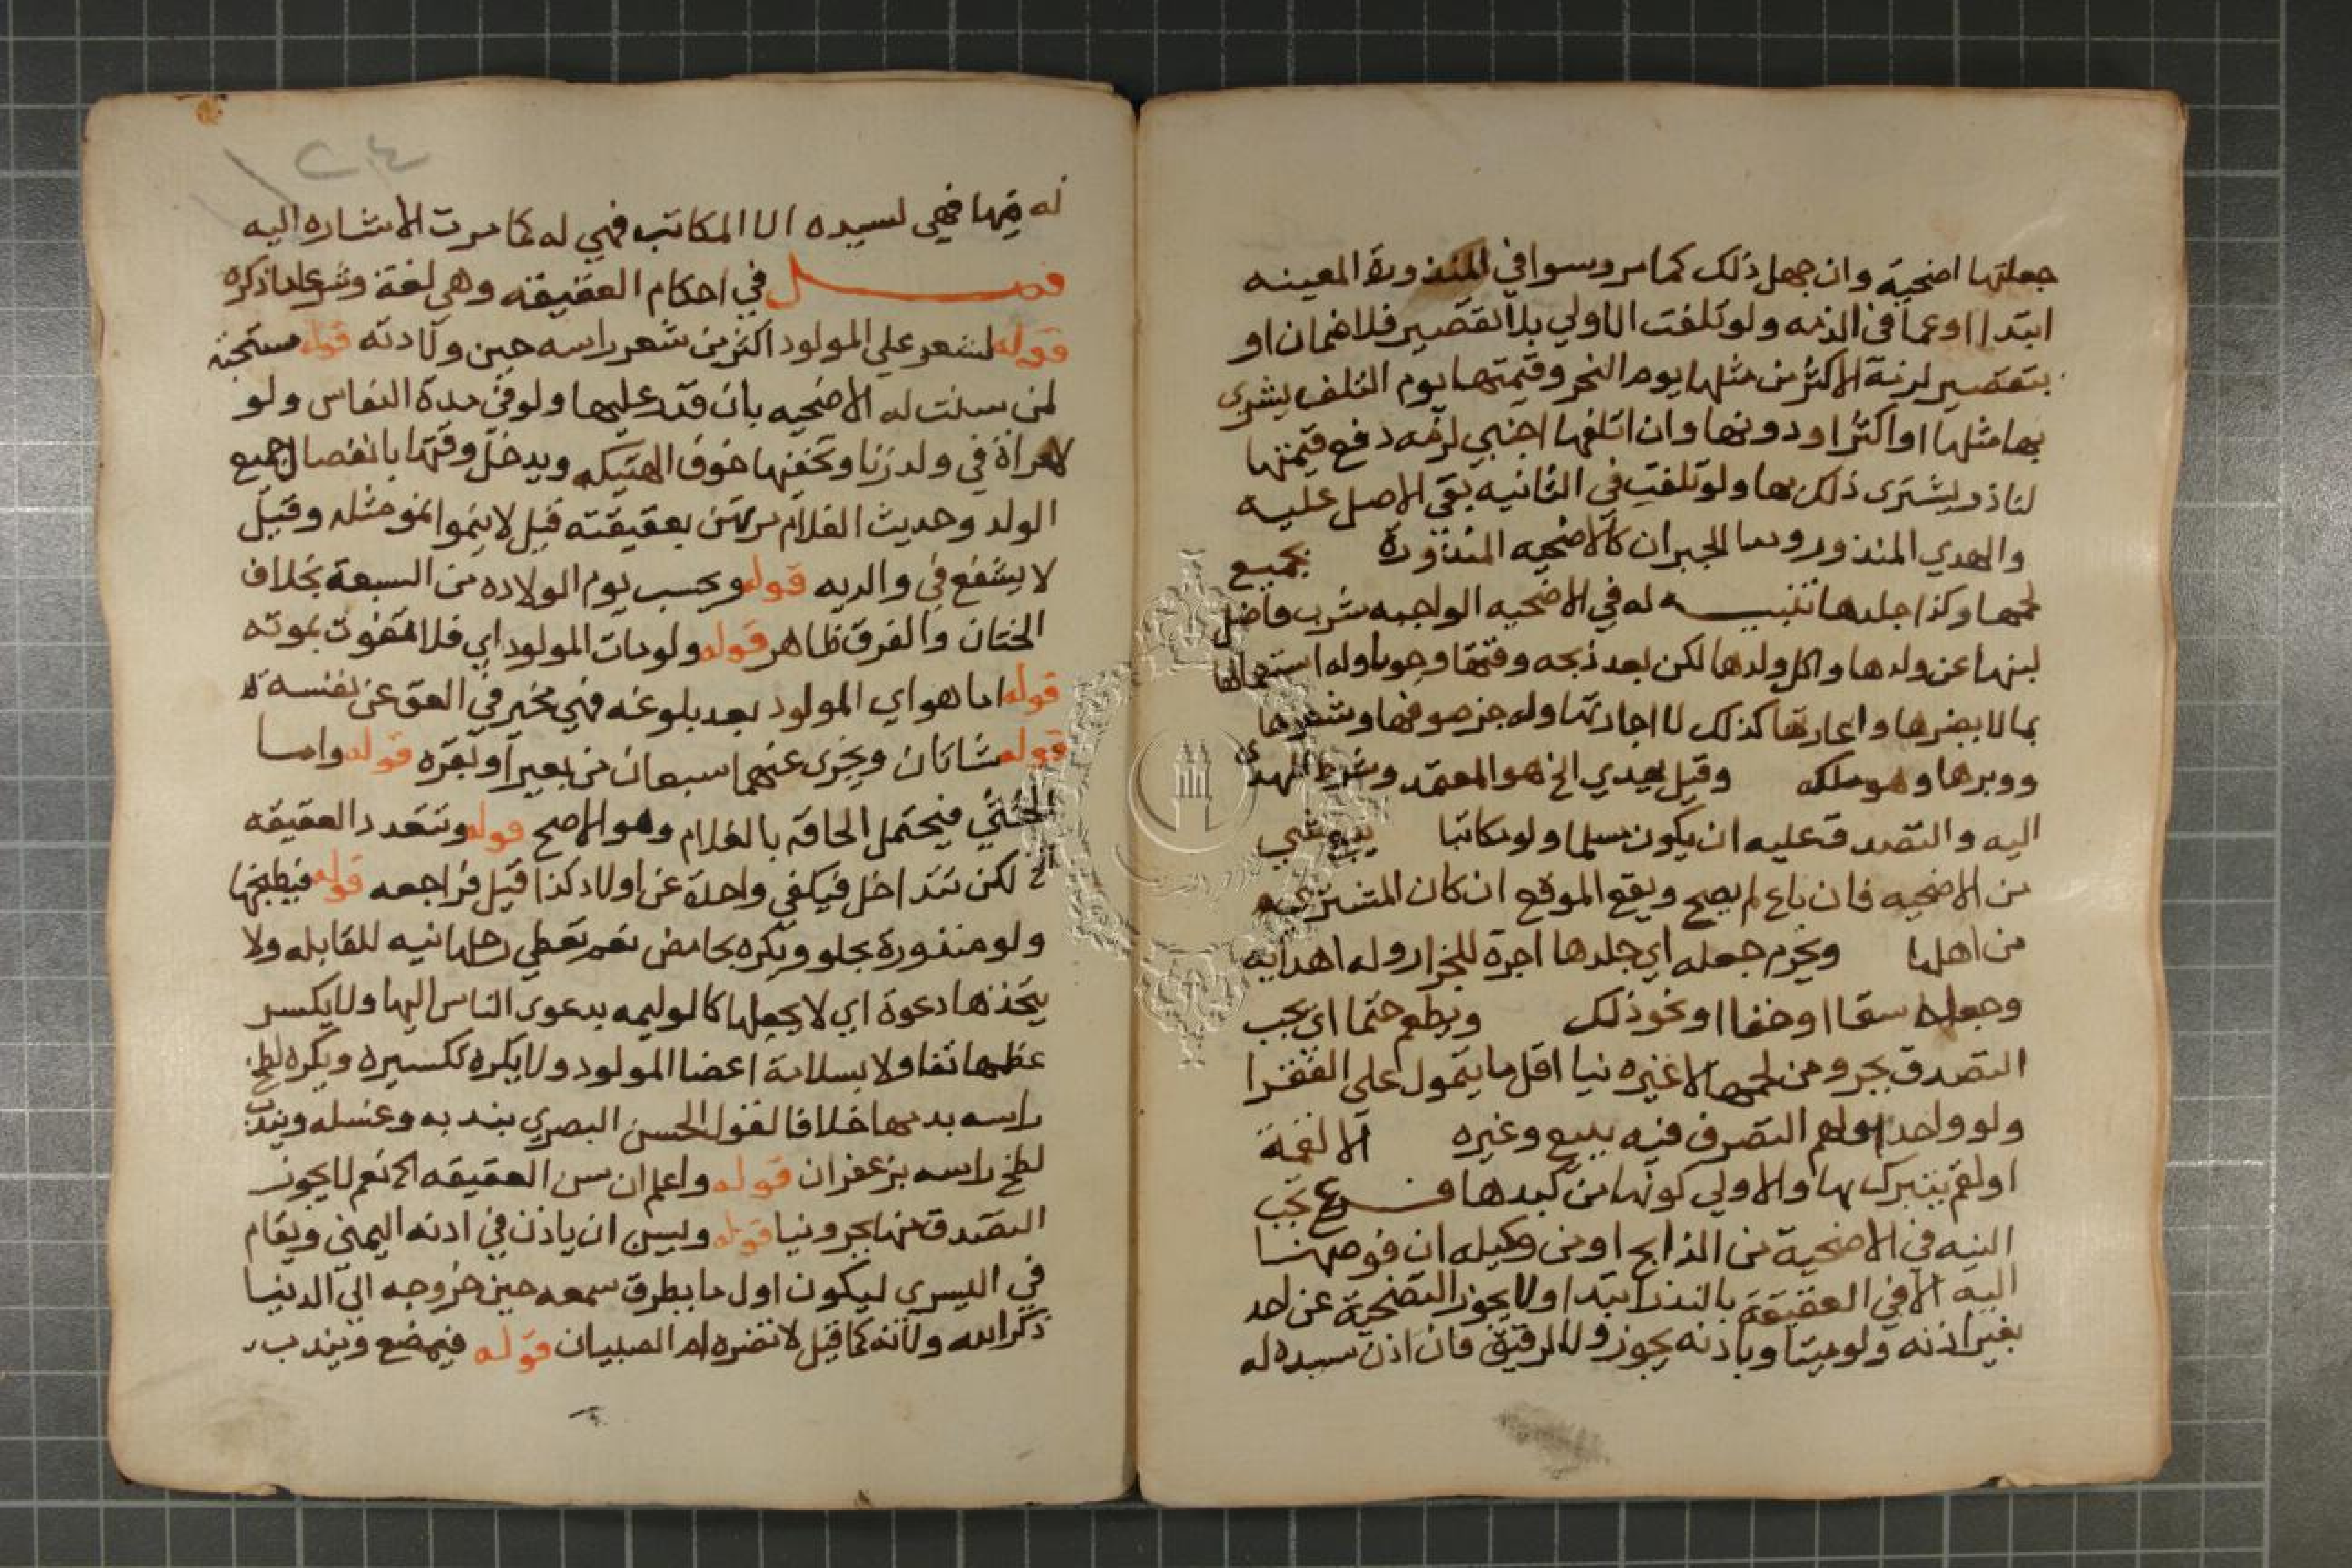 جعلتها اضحية وان جهل ذلك كما مر وسوا في المنذورة المعينه
ابتدا او عما في الذمه ولو تلفت الاولي بلا تقصير فلا ضمان او
بتقصير لزمة الاكثر من مثلها يوم النحر وقيمتها يوم التلف يشترى
بها مثلها او اكثر او دونها وان اتلفها اجنبي لزمه دفع قيمتها
لناذر يشترى ذلك بها ولو تلفت في الثانيه بقي الاصل عليه
والهدي المنذور ودما الجبران كالاضحيه المنذورة بجميع
لحمها وكذا جلدها تنبيه له في الاضحيه الواجبه شرب فاضل
لبنها عن ولدها واكل ولدها لكن بعد ذبحه وقتها وجوبا وله استعمالها
بما لا يضرها واعارتها كذلك لا اجارتها وله جز صوفها وشعرها
ووبرها وهو ملكه وقيل يهدي الخ هو المعتمد وشرط المهدى
اليه والتصدق عليه ان يكون مسلما ولو مكاتبا بيع شي
من الاضحيه فان باع لم يصح ويقع الموقع ان كان المشترى
من اهلها ويحرم جعله اي جلدها اجرة للجزار وله اهدايه
وجعله سقا او خفا او نحو ذلك ويطعم حتما اي يجب
التصدق بجزو من لحمها لا غيره نيا اقل ما يتمول على الفقرا
ولو واحدا ولهم التصرف فيه ببيع وغيره الا لقمة
او لقم يتبرك بها والاولي كونها من كبدها فرع تجب
النيه في الاضحية من الذابح او من وكيله ان فوضها
اليه الا في العقيقة بالنذر ابتدا ولا يجوز التضحية عن احد
بغير اذنه ولو ميتا وباذنه يجوز ولا لرقيق فان اذن سيده له
١٢٤
له فيها فهي لسيده الا المكاتب فهي له كما مرت الاشاره اليه
فصل في احكام العقيقه وهي لغة وشرعا ما ذكره
قوله لشعر علي المولود اكثر من شعر راسه حين ولادته قوله مستحبه
لمن سنت له الاضحيه بان قدر عليها ولو في مدة النفاس ولو
لامراة في ولد زنا وتخفيها خوف الهتيكه ويدخل وقتها بانفصال جميع
الولد وحديث الغلام مرتهن بعقيقته قيل لا ينموا نمو مثله وقيل
لا يشفع في والديه قوله ويحسب يوم الولاده من السبعة بخلاف
الختان والفرق ظاهر قوله ولو مات المولود اي فلا تفوت بموته
قوله اما هو اي المولود بعد بلوغه فهي مخير في العق عن نفسه
قوله شاتان ويجزى عنهما سبعان من بعير او بقره قوله واما
الخنثي فيحتمل الحاقه بالغلام وهو الاصح قوله وتتعدد العقيقه
الخ لكن تتداخل فيكفي واحدة عن اولاد كذا قيل فراجعه قوله فيطبخها
ولو منذورة بحلو ويكره بحامض نعم تعطي رجلها نيه للقابله ولا
يتخذها دعوة اي لا يجعلها كالوليمه بدعوى الناس اليها ولا يكسر
عظمها تفاولا بسلامة اعضا المولود ولا يكره تكسيره ويكره لطخ
راسه بدمها خلافا لقول الحسن البصري بندبه وغسله ويندب
لطخ راسه بزعفران قوله واعلم ان سن العقيقه الخ نعم لا يجوز
التصدق منها بجزو نيا قوله ويسن ان ياذن في اذنه اليمني ويقام
في اليسري ليكون اول ما يطرق سمعه حين خروجه الي الدنيا
ذكر الله ولانه كما قيل لا تضره ام الصبيان قوله فيمضغ ويندب